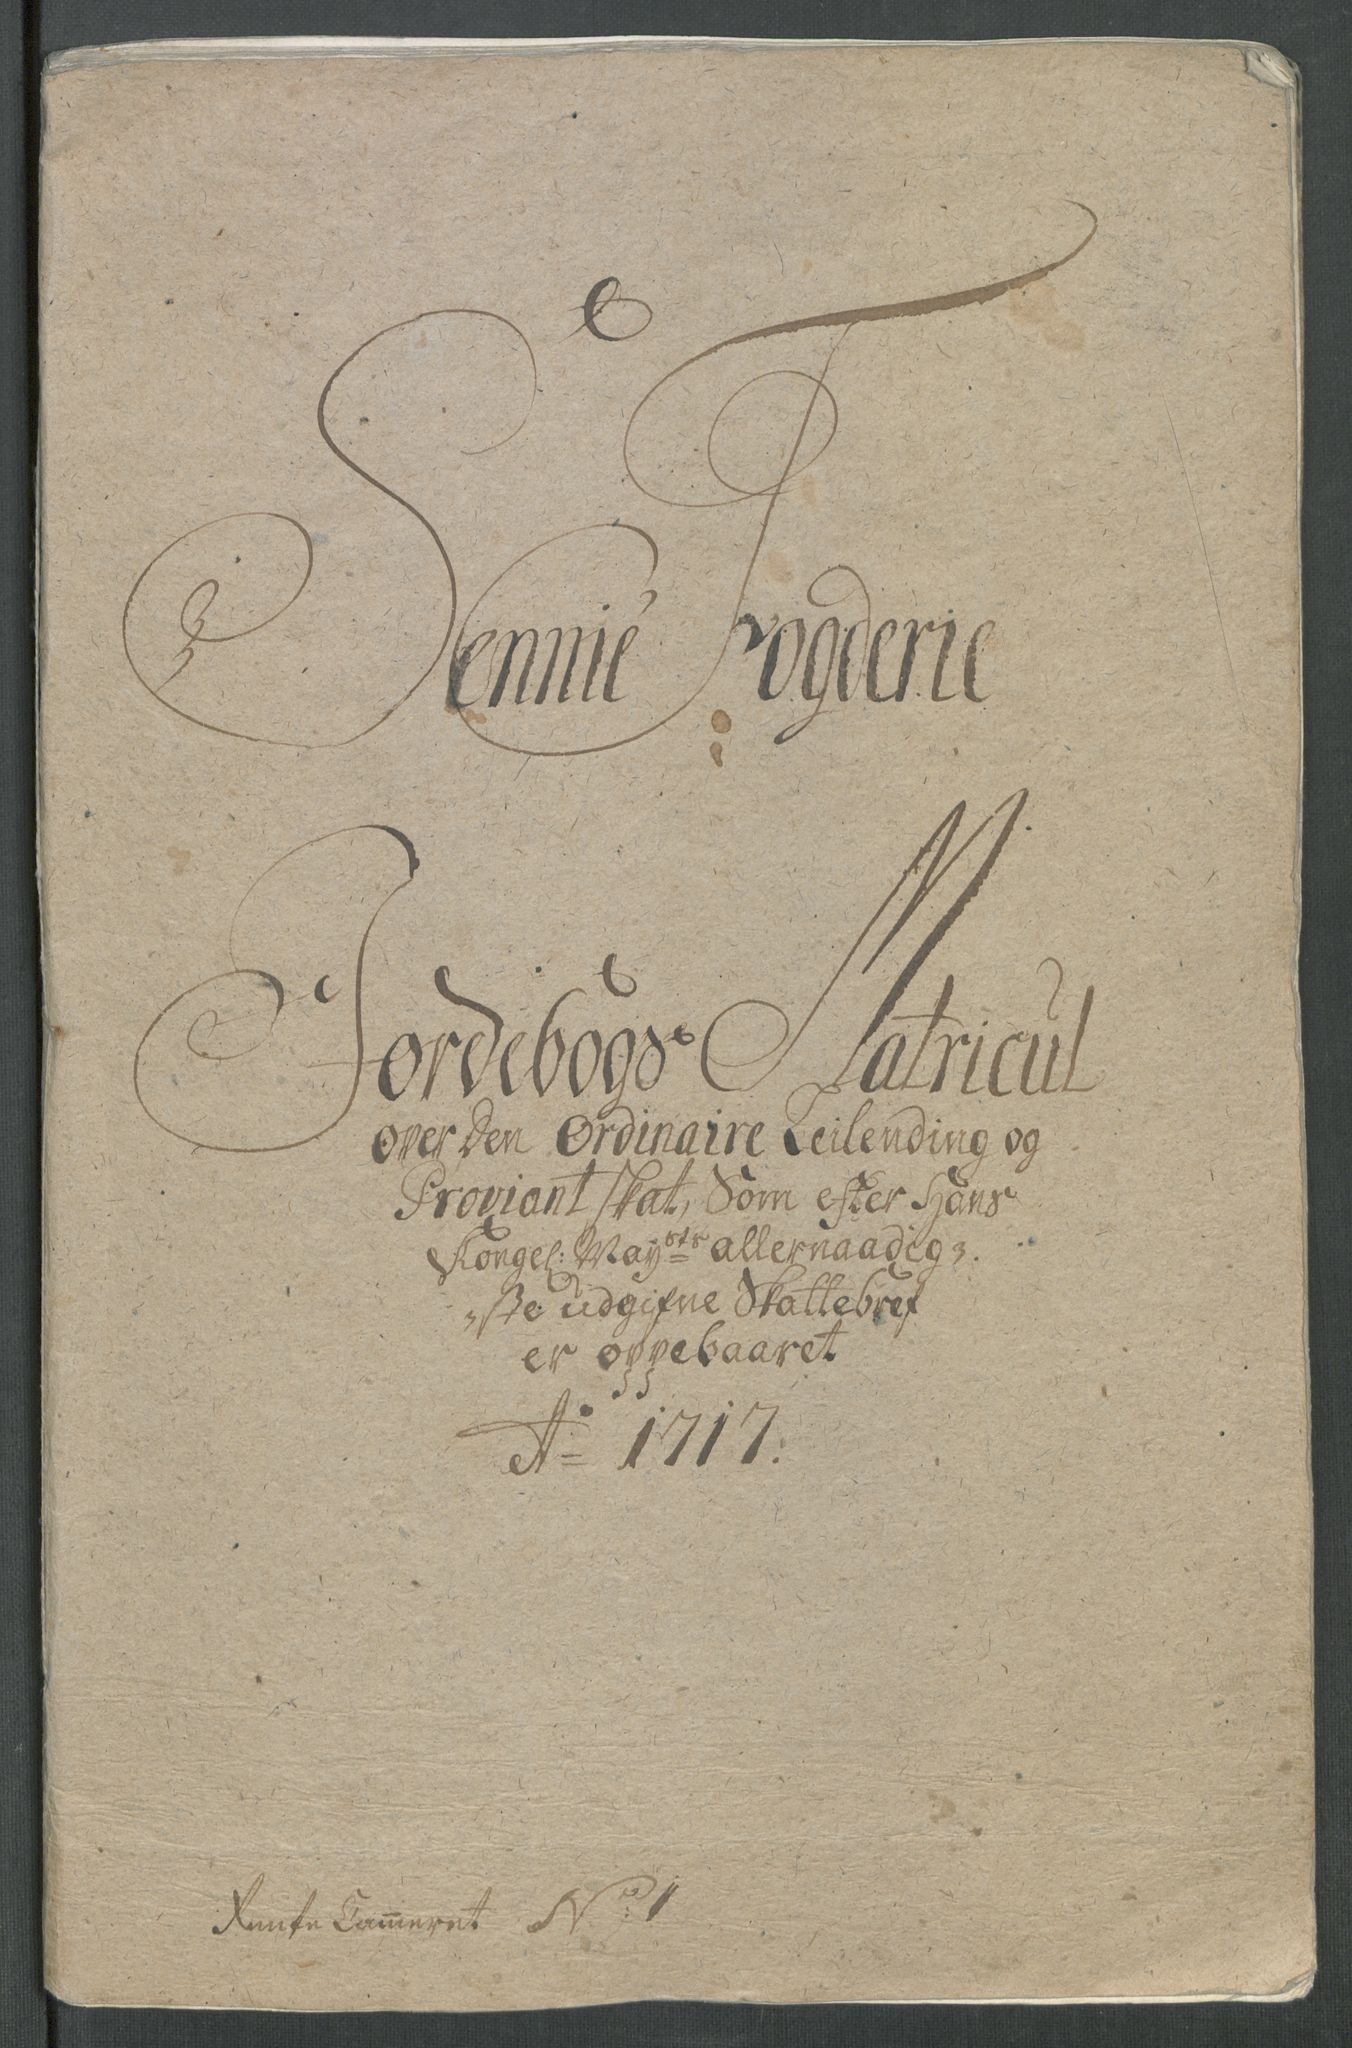 Sennie Fogderie
Jordebogs Matricul
over den Ordinaire Leilending og
Proviant skat, Som efter Hans
Kongel: May^sts allernaadig„
„ste udgifne Skattebref
er oppebaaret
A° 1717.
Rente Cam̄eret N° 1